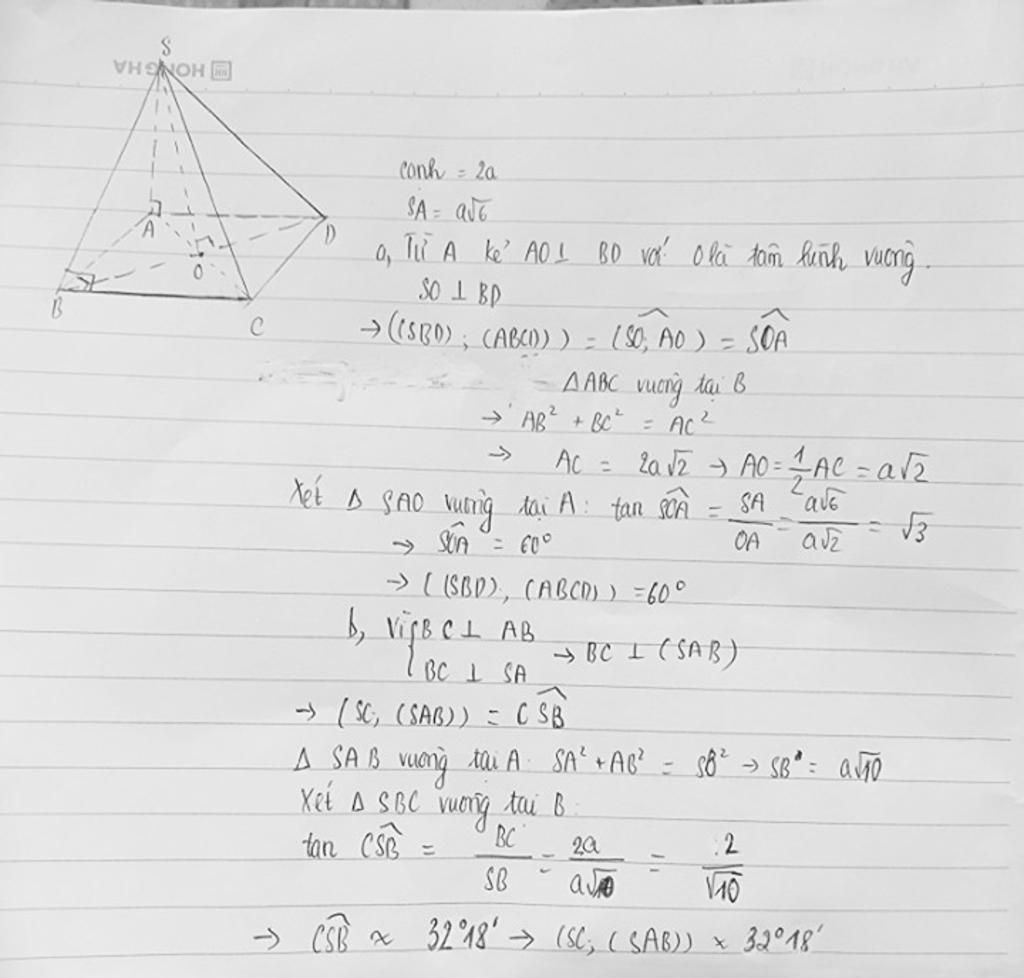 HONG HA
S
A
D
O
B
C
cạnh = 2a
SA = a√6
a, Từ A kẻ AO ⊥ BD với O là tâm hình vuông.
SO ⊥ BD
→ ((SBD); (ABCD)) = (SO; AO) = SOA
ΔABC vuông tại B
→ AB² + BC² = AC²
→ AC = 2a√2 → AO = 1/2 AC = a√2
Xét Δ SAO vuông tại A: tan SOA = SA/OA = a√6/a√2 = √3
→ SOA = 60°
→ ((SBD), (ABCD)) = 60°
b, Vì { BC ⊥ AB
BC ⊥ SA → BC ⊥ (SAB)
→ (SC, (SAB)) = CSB
Δ SAB vuông tại A: SA² + AB² = SB² → SB = a√10
Xét Δ SBC vuông tại B:
tan CSB = BC/SB = 2a/a√10 = 2/√10
→ CSB ≈ 32°18' → (SC, (SAB)) ≈ 32°18'